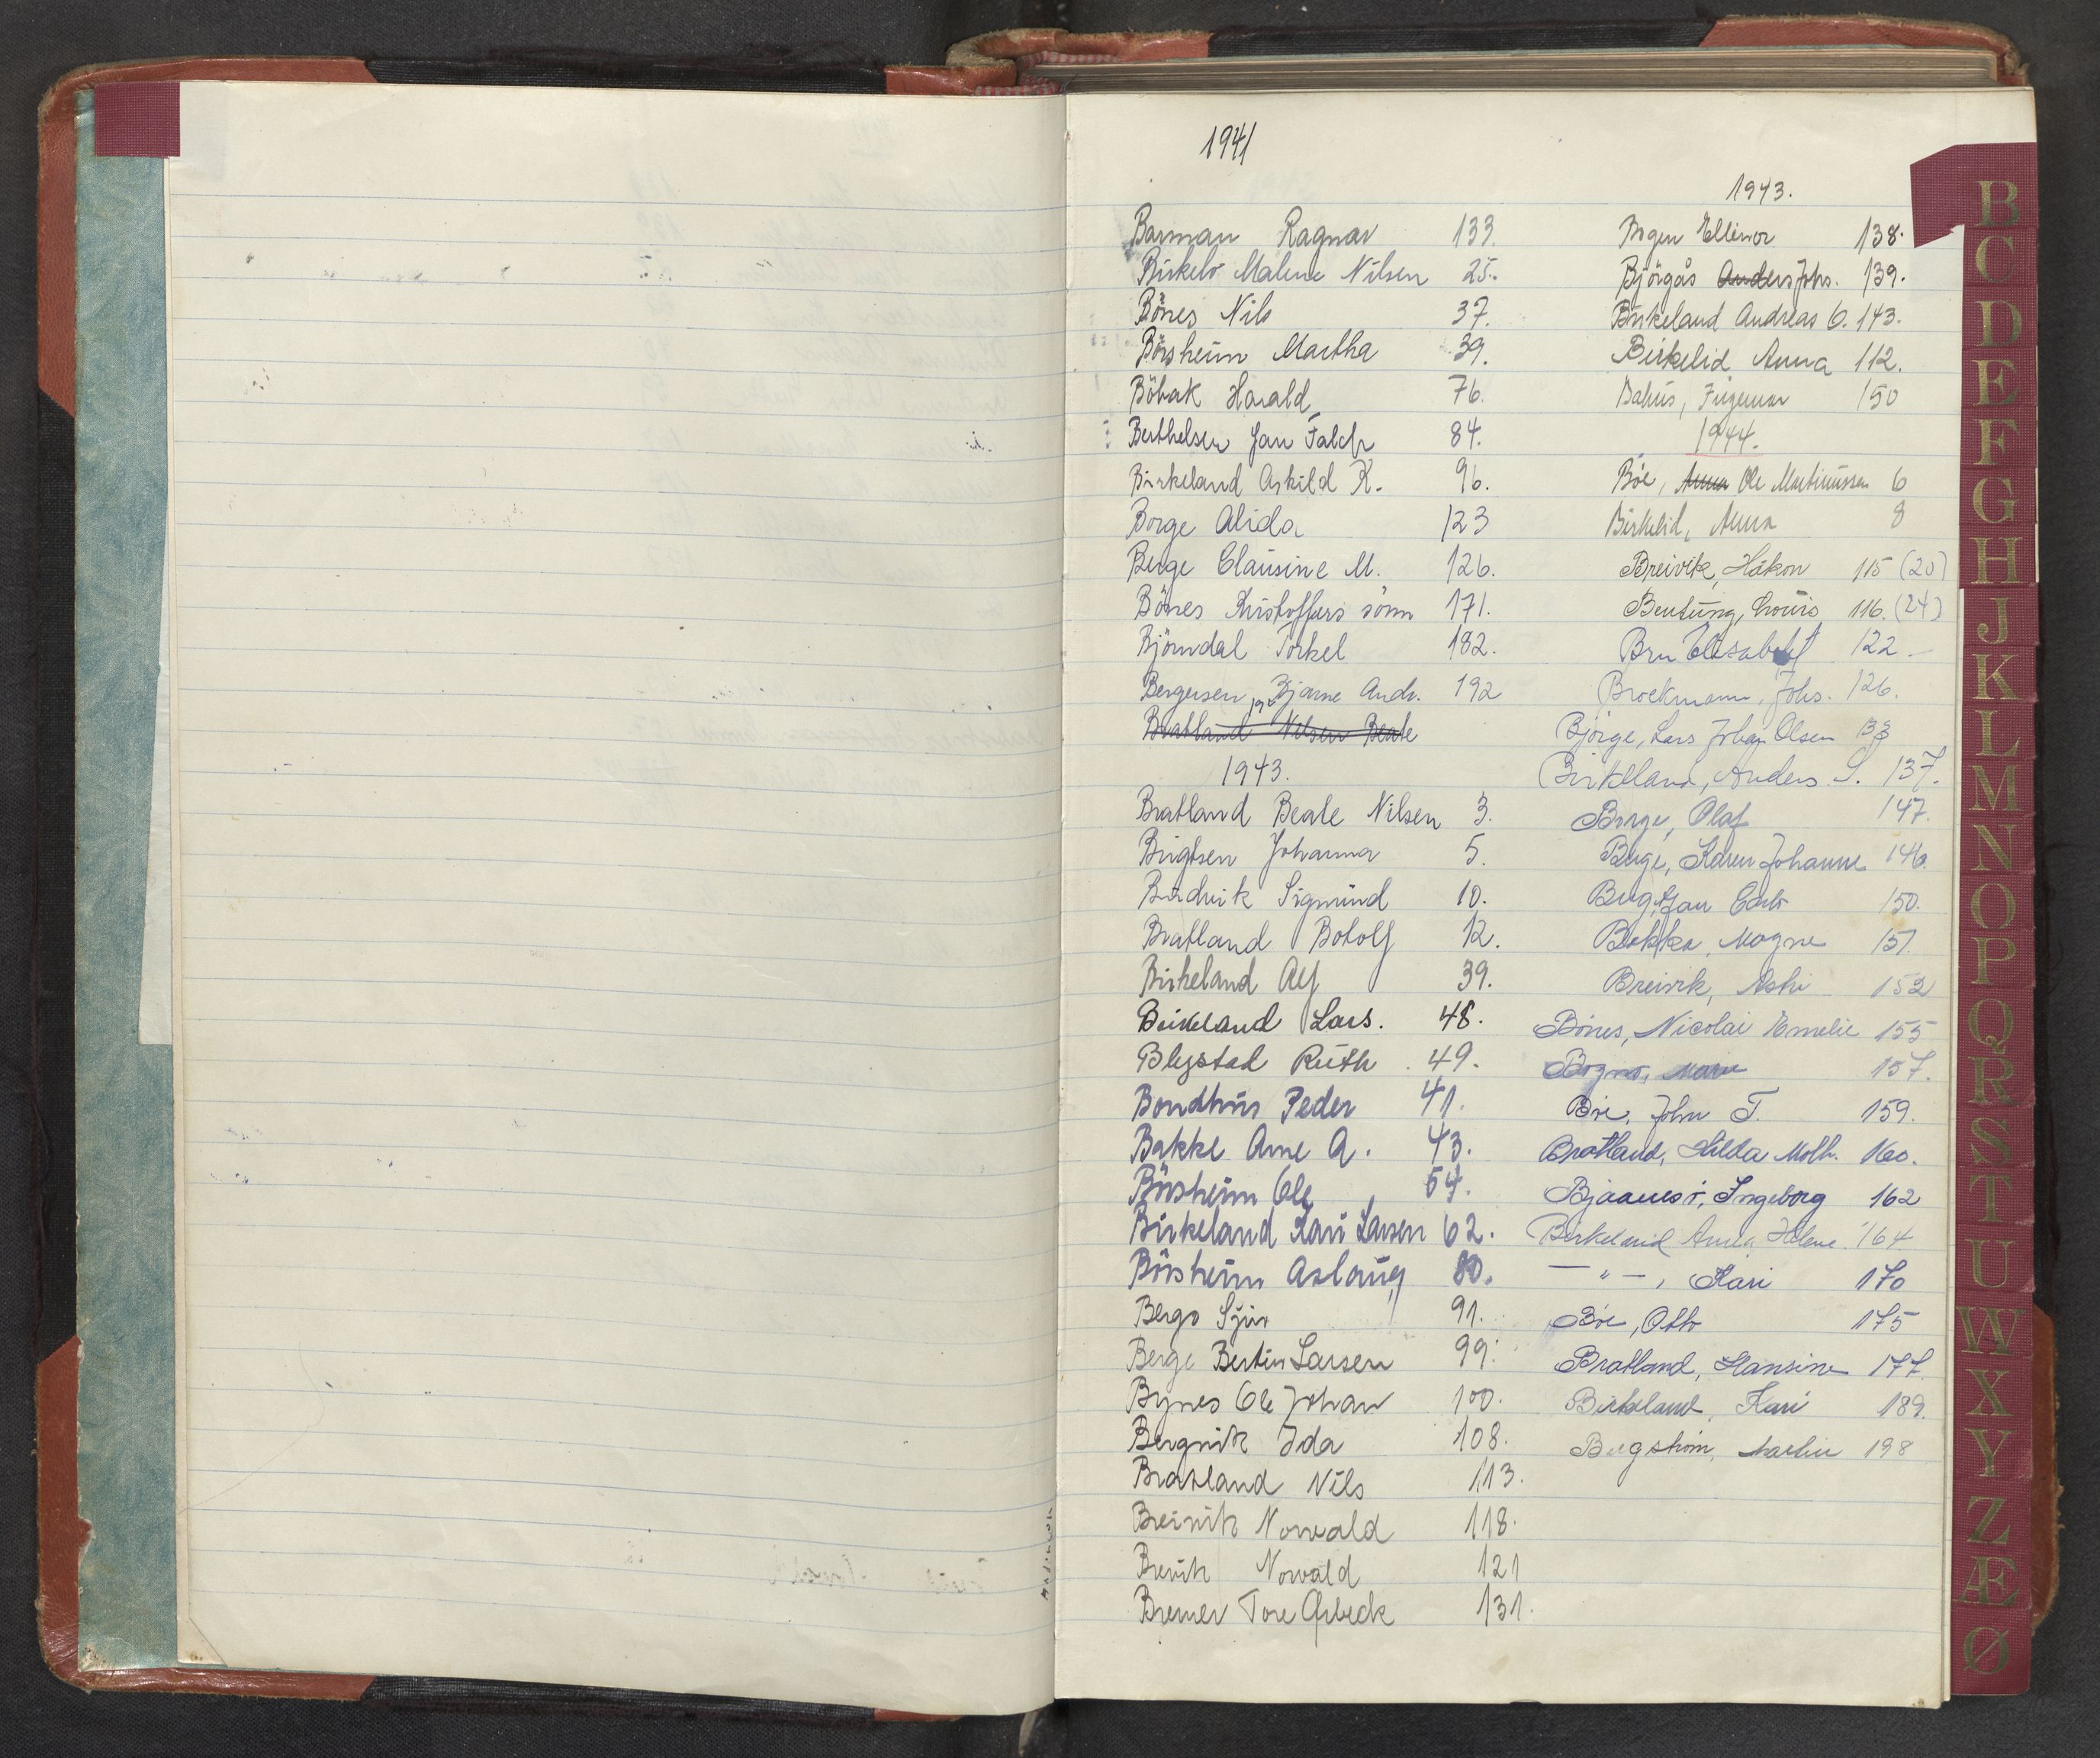 1941
Barman Ragnar 133.
Birkelö Malene Nilsen 25.
Bönes Nils 37.
Börsheim Martha 39.
Böbak Harald 76.
Berthelsen Jan Falch 84.
Birkeland Askild K. 96.
Borge Alida 123
Berge Clausine M. 126.
Bönes Kristoffers sönn 171.
Björndal Torkel 182.
Bergersen Bjarne Andr. 192
Bratland Nilsen Beate
1943.
Bratland Beate Nilsen 3.
Brigtsen Johanna 5.
Sigmund 10.
Bratland Botolf 12.
Birkeland Alf 39.
Birkeland Lars. 48.
Blystad Ruth 49.
Bondhus Peder 41.
Bakke Arne A. 43.
Börsheim Ole 54.
Birkeland Kari Larsen 62.
Börsheim Aslaug 80.
Bergo Sjur 91.
Berge Bertin Larsen 99.
Bynes Ole Johan 100.
Bergvik Ida 108.
Bratland Nils 113.
Breivik Norvald 118.
Brevik Norvald 121
Bremer Tore 131.
1943.
Bogen Ellinor 138.
Björgås Anders Johs. 139.
Birkeland Andreas O. 143.
Birkelid Anna 112.
Bahus, Ingemar 150
1944.
Böe, Anna Ole Martinussen 6
Birkelid, Anna 8
Breivik, Håkon 115 (20)
Louis 116. (24)
Bru Elisabet 122
Brockmann, Johs. 126.
Björge, Lars Johan Olsen 133
Birkeland, Anders S. 137.
Borge, Olaf 147.
Berge, Karen Johanne 146.
Berg, Jan 150.
Bakka, Magne 151.
Breivik, 152
Bönes, Nicolai Emelie 155
157.
Böe, John T. 159.
Bratland, Hilda Math. 160.
Bjaanesö, Ingeborg 162
Birkeland Anna Helene. 164
— " —, Kari 170
Böe, Otto 175
Bratland, Hansine 177.
Birkeland, Kari 189.
Bergström, Martin 198
B
C
D
E
F
G
H
J
K
L
M
N
O
P
Q
R
S
T
U
W
X
Y
Z
Æ
Ø